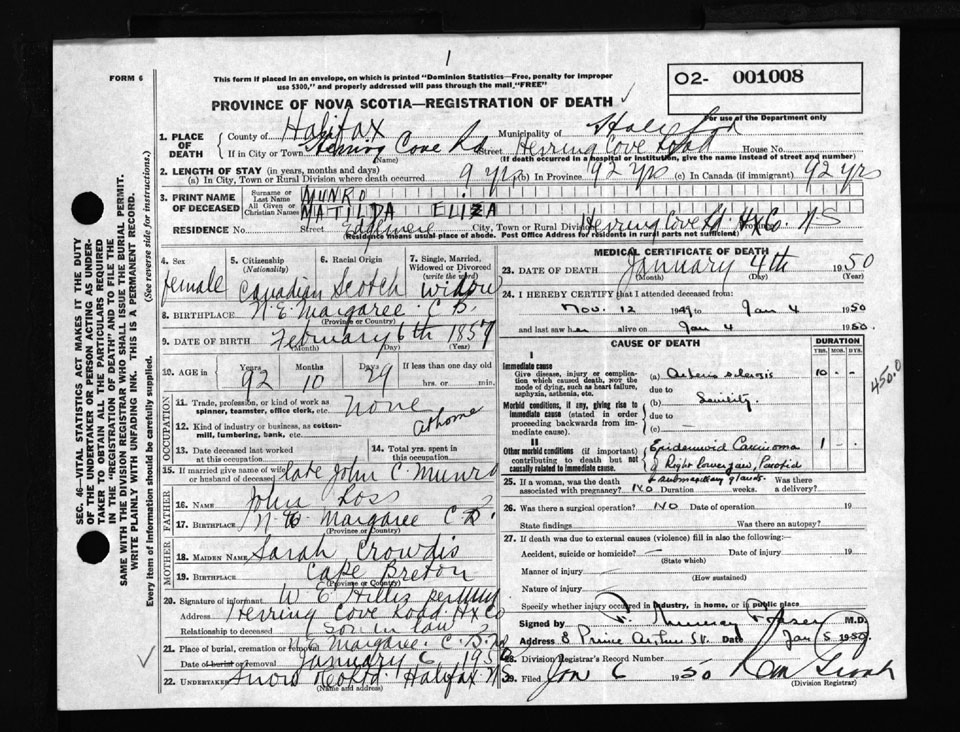 1
FORM 6
This form if placed in an envelope, on which is printed "Dominion Statistics—Free, penalty for improper
use $300," and properly addressed will pass through the mail, "FREE"
O2- 001008
For use of the Department only
PROVINCE OF NOVA SCOTIA—REGISTRATION OF DEATH
1. PLACE OF DEATH
County of Halifax Municipality of
If in City or Town Herring Cove Rd Street Herring Cove Road House No.
(Name) (If death occurred in a hospital or institution, give the name instead of street and number)
2. LENGTH OF STAY (in years, months and days)
(a) In City, Town or Rural Division where death occurred 9 yrs (b) In Province 92 yrs (c) In Canada (if immigrant) 92 yrs
3. PRINT NAME OF DECEASED
Surname or Last Name MUNRO
All Given or Christian Names MATILDA ELIZA
RESIDENCE No. Street City, Town or Rural Herring Cove Rd. Hx Co. Province N-S
(Residence means usual place of abode. Post Office Address for residents in rural parts not sufficient)
4. Sex female
5. Citizenship (Nationality) Canadian
6. Racial Origin Scotch
7. Single, Married, Widowed or Divorced (write the word) widow
8. BIRTHPLACE N.E. Margaree C.B.
(Province or Country)
9. DATE OF BIRTH February 6th 1857
(Month) (Day) (Year)
10. AGE in Years 92 Months 10 Days 29 If less than one day old hrs. or min.
OCCUPATION
11. Trade, profession, or kind of work as
spinner, teamster, office clerk, etc. none
12. Kind of industry or business, as cotton-
mill, lumbering, bank, etc. at home
13. Date deceased last worked at this occupation
14. Total yrs. spent in this occupation
15. If married give name of wife or husband of deceased late John C. Munro
FATHER
16. NAME John Ross
17. BIRTHPLACE N.E. Margaree C-B.
(Province or Country)
MOTHER
18. MAIDEN NAME Sarah Crowdis
19. BIRTHPLACE Cape Breton
(Province or Country)
20. Signature of informant W. E. Hillis
Address Herring Cove Road. Hx Co
Relationship to deceased son in law
21. Place of burial, cremation or removal N.E. Margaree. C-B.
Date of burial or removal January 6 1950
22. UNDERTAKER Snow & Co Ltd. Halifax N-S
(Name and address)
MEDICAL CERTIFICATE OF DEATH
23. DATE OF DEATH January 4th 1950
(Month) (Day)
24. I HEREBY CERTIFY that I attended deceased from
Nov. 12 1949 to Jan 4 1950
and last saw her alive on Jan 4 1950.
CAUSE OF DEATH
DURATION
YRS. MOS. DYS.
I
Immediate cause
Give disease, injury or complication which caused death, NOT the mode of dying, such as heart failure, asphyxia, asthenia, etc.
(a) Arterio sclerosis 10 - -
due to
Morbid conditions, if any, giving rise to immediate cause (stated in order proceeding backwards from immediate cause).
(b) Senility.
due to
(c) —
II
Other morbid conditions (if important) contributing to death but not causally related to immediate cause.
Epidermoid Carcinoma 1 - -
of Right lower jaw, Parotid
& submaxillary glands.
450.0
25. If a woman, was the death associated with pregnancy? No Duration weeks. Was there a delivery?
26. Was there a surgical operation? No Date of operation 19
State findings Was there an autopsy?
27. If death was due to external causes (violence) fill in also the following:—
Accident, suicide or homicide? — Date of injury 19
(State which)
Manner of injury —
(How sustained)
Nature of injury —
Specify whether injury occurred in industry, in home, or in public place
Signed by Murray Fraser M.D.
Address 8 Prince Arthur St. Date Jan 5 1950
28. Division Registrar's Record Number
29. Filed Jan 6 1950
(Division Registrar)
SEC. 46—VITAL STATISTICS ACT MAKES IT THE DUTY
OF THE UNDERTAKER OR PERSON ACTING AS UNDER-
TAKER TO OBTAIN ALL THE PARTICULARS REQUIRED
IN THE "REGISTRATION OF DEATH" AND TO FILE THE
SAME WITH THE DIVISION REGISTRAR WHO SHALL ISSUE THE BURIAL PERMIT.
WRITE PLAINLY WITH UNFADING INK. THIS IS A PERMANENT RECORD.
Every item of information should be carefully supplied. (See reverse side for instructions.)